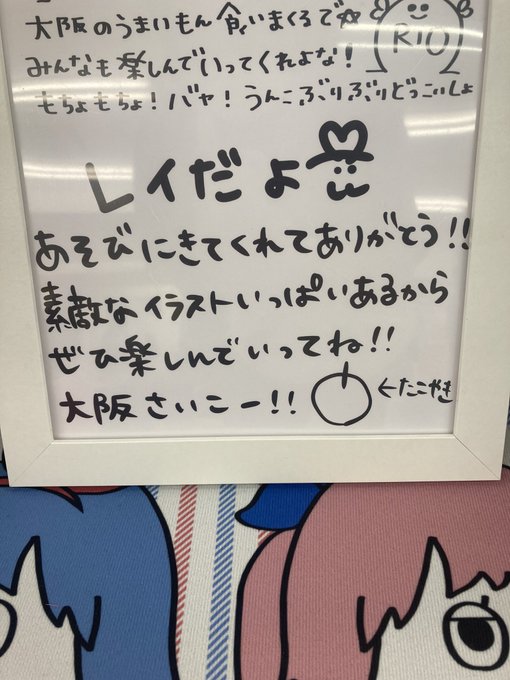 大阪のうまいもん食いまくるで
RIO
みんなも楽しんでいってくれよな!
もちょもちょ!バャ!うんこぶりぶりどっこいしょ
レイだよ
あそびにきてくれてありがとう!!
素敵なイラストいっぱいあるから
ぜひ楽しんでいってね!!
大阪さいこー!!
←たこやき